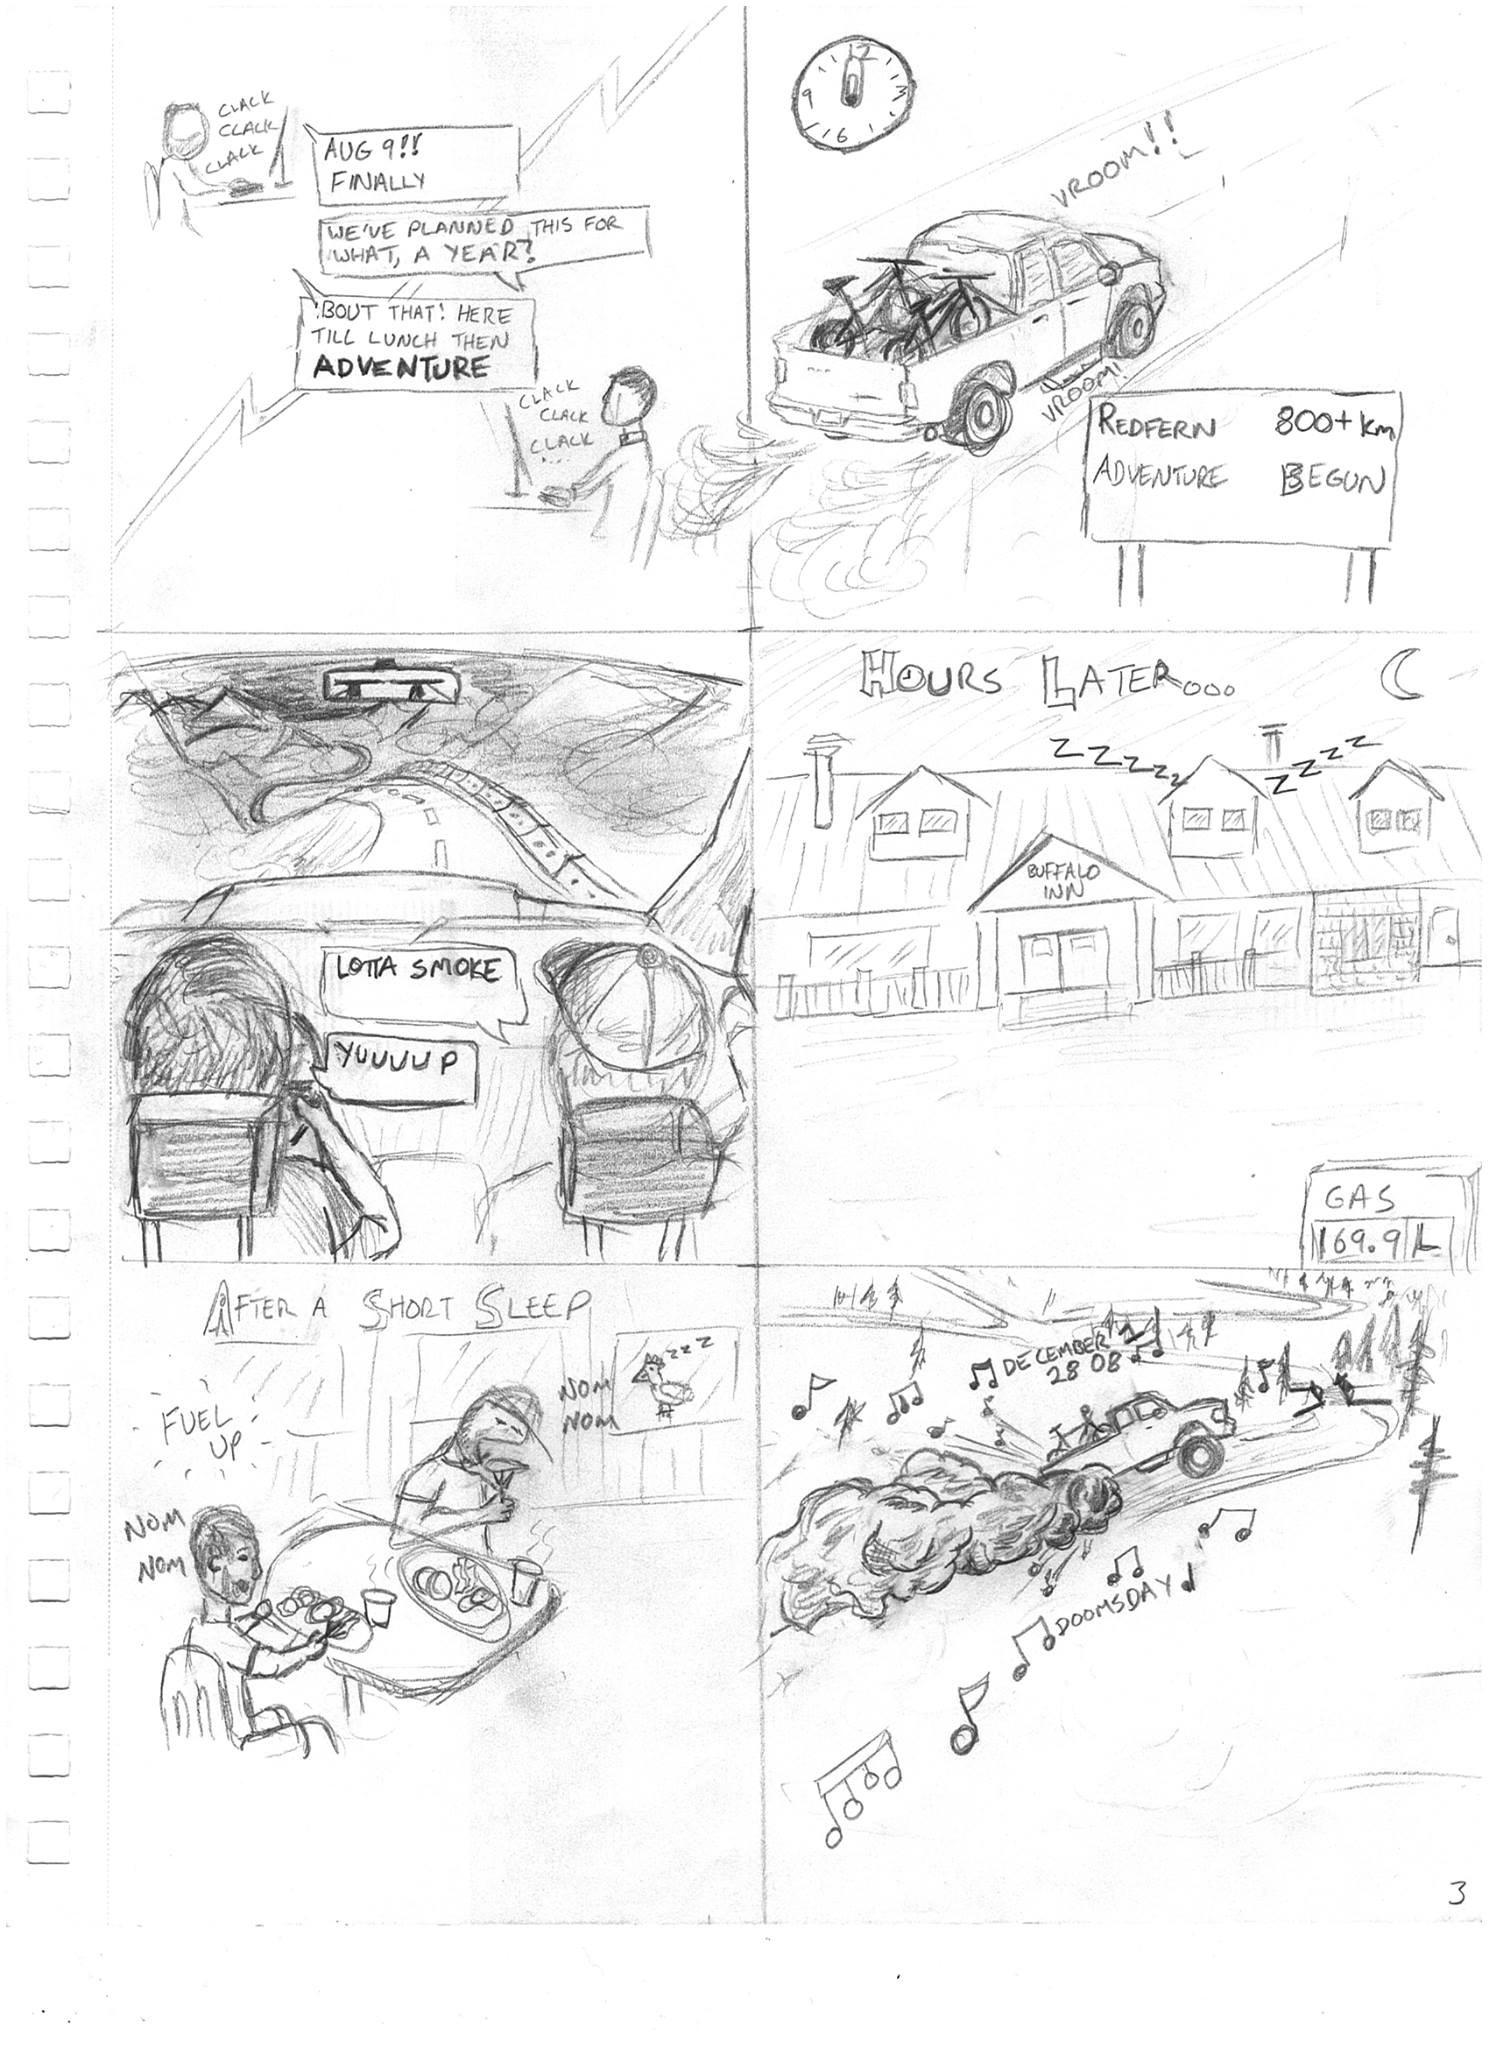 CLACK
CLACK
CLACK
AUG 9!!
FINALLY
WE'VE PLANNED THIS FOR
WHAT, A YEAR?
'BOUT THAT! HERE
TILL LUNCH THEN
ADVENTURE
CLACK
CLACK
CLACK
...
12
9
3
6
VROOM!!
VROOM!
REDFERN 800+ km
ADVENTURE BEGUN
LOTTA SMOKE
YUUUUP
HOURS LATER...
ZZZZZZ
ZZZZZ
BUFFALO
INN
GAS
169.9 L
AFTER A SHORT SLEEP
FUEL
UP
NOM
NOM
NOM
NOM
ZZZ
DECEMBER
28 08
DOOMSDAY
3